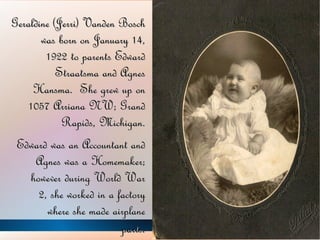 Geraldine (Jerri) Vanden Bosch
was born on January 14,
1922 to parents Edward
Straatsma and Agnes
Hansma. She grew up on
1057 Arriana NW; Grand
Rapids, Michigan.
Edward was an Accountant and
Agnes was a Homemaker;
however during World War
2, she worked in a factory
where she made airplane
parts.